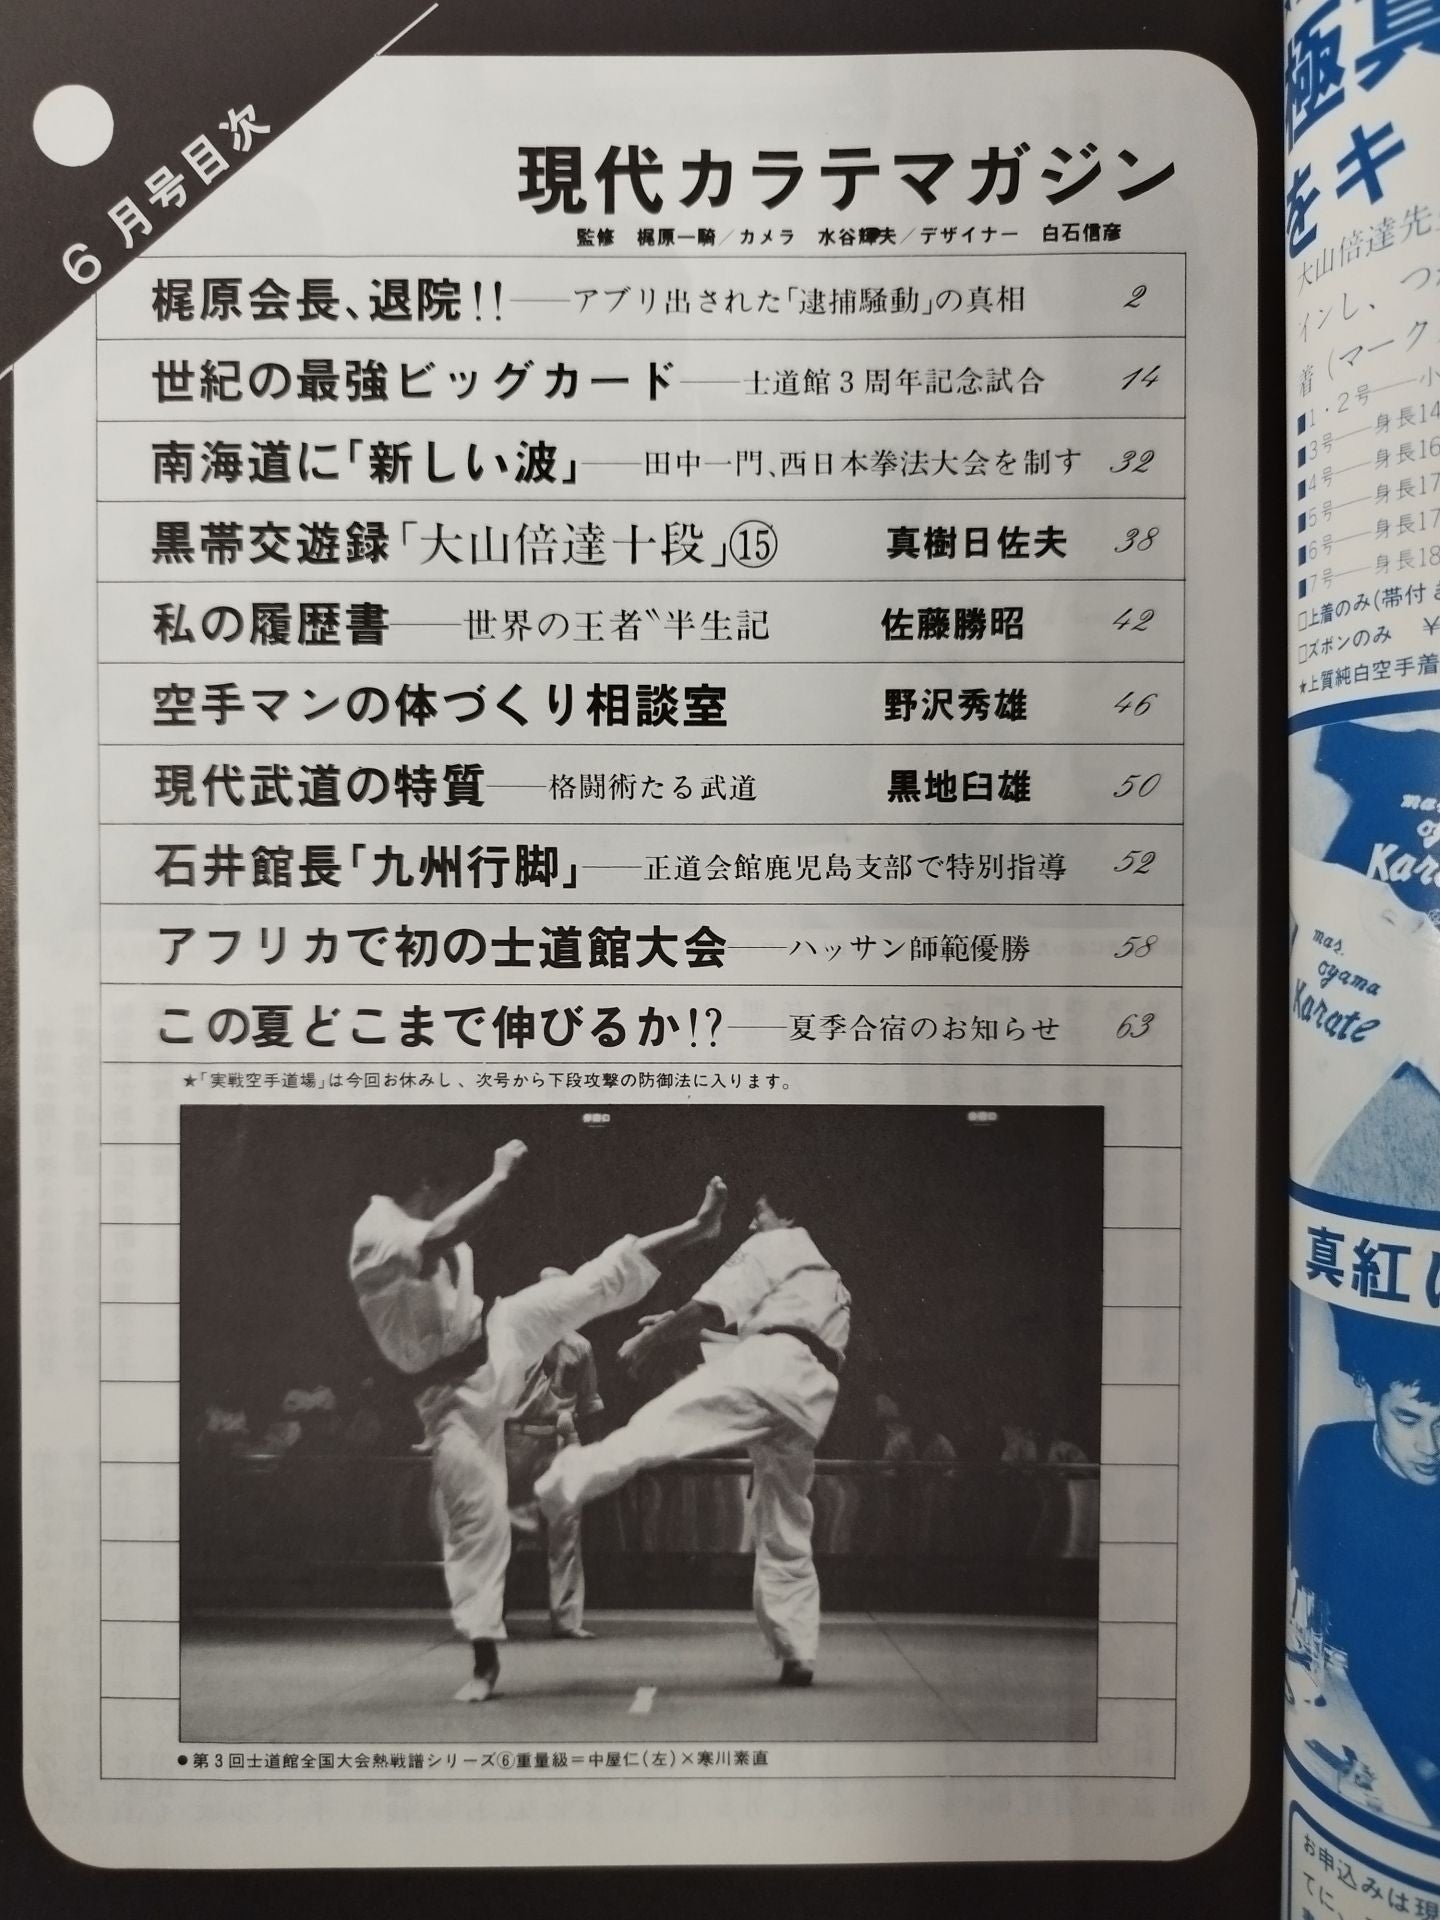 6月号目次
現代カラテマガジン
監修　梶原一騎／カメラ　水谷輝夫／デザイナー　白石信彦
梶原会長、退院!!──アブリ出された「逮捕騒動」の真相 2
世紀の最強ビッグカード──士道館3周年記念試合 14
南海道に「新しい波」──田中一門、西日本拳法大会を制す 32
黒帯交遊録「大山倍達十段」⑮ 真樹日佐夫 38
私の履歴書──世界の王者〝半生記 佐藤勝昭 42
空手マンの体づくり相談室 野沢秀雄 46
現代武道の特質──格闘術たる武道 黒地臼雄 50
石井館長「九州行脚」──正道会館鹿児島支部で特別指導 52
アフリカで初の士道館大会──ハッサン師範優勝 58
この夏どこまで伸びるか!?──夏季合宿のお知らせ 63
★「実戦空手道場」は今回お休みし、次号から下段攻撃の防御法に入ります。
●第3回士道館全国大会熱戦譜シリーズ⑥重量級＝中屋仁(左)×寒川素直
極真
をキ
大山倍達先
インし、つ
着(マーク
■1・2号──小
■3号──身長14
■4号──身長16
■5号──身長17
■6号──身長17
■7号──身長18
□上着のみ(帯付き
□ズボンのみ　¥
★上質純白空手着
mas
oy
Kara
mas.
oyama
Karate
真紅
お申込みは現
てに、